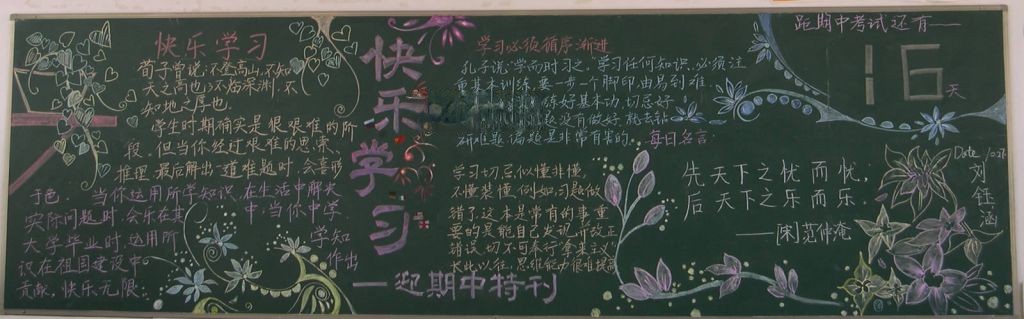 快乐学习
荀子曾说:不登高山,不知
天之高也;不临深渊,不
知地之厚也。
学生时期确实是很艰难的阶
段,但当你经过艰难的思索、
推理,最后解出一道难题时,会喜形
于色;当你运用所学知识在生活中解决
实际问题时,会乐在其中;当你中学、
大学毕业时,运用所学知
识在祖国建设中作出
贡献,快乐无限;
快乐学习
一迎期中特刊
学习必须循序渐进
孔子说"学而时习之,学习任何知识,必须注
重基本训练,要一步一个脚印,由易到难,
练好基本功,切忌好
没有做好 就去钻
研难题、偏题是非常有害的。
学习切忌似懂非懂,
不懂装懂,例如,习题做
错了,这本是常有的事,重
要的是能自己发现,并改正
错误,切不可奉行"拿来主义"
长此以往,思维能力很难提高
每日名言:
先天下之忧而忧,
后天下之乐而乐.
——[宋]范仲淹
距期中考试还有——
16
天
Date
刘钰涵